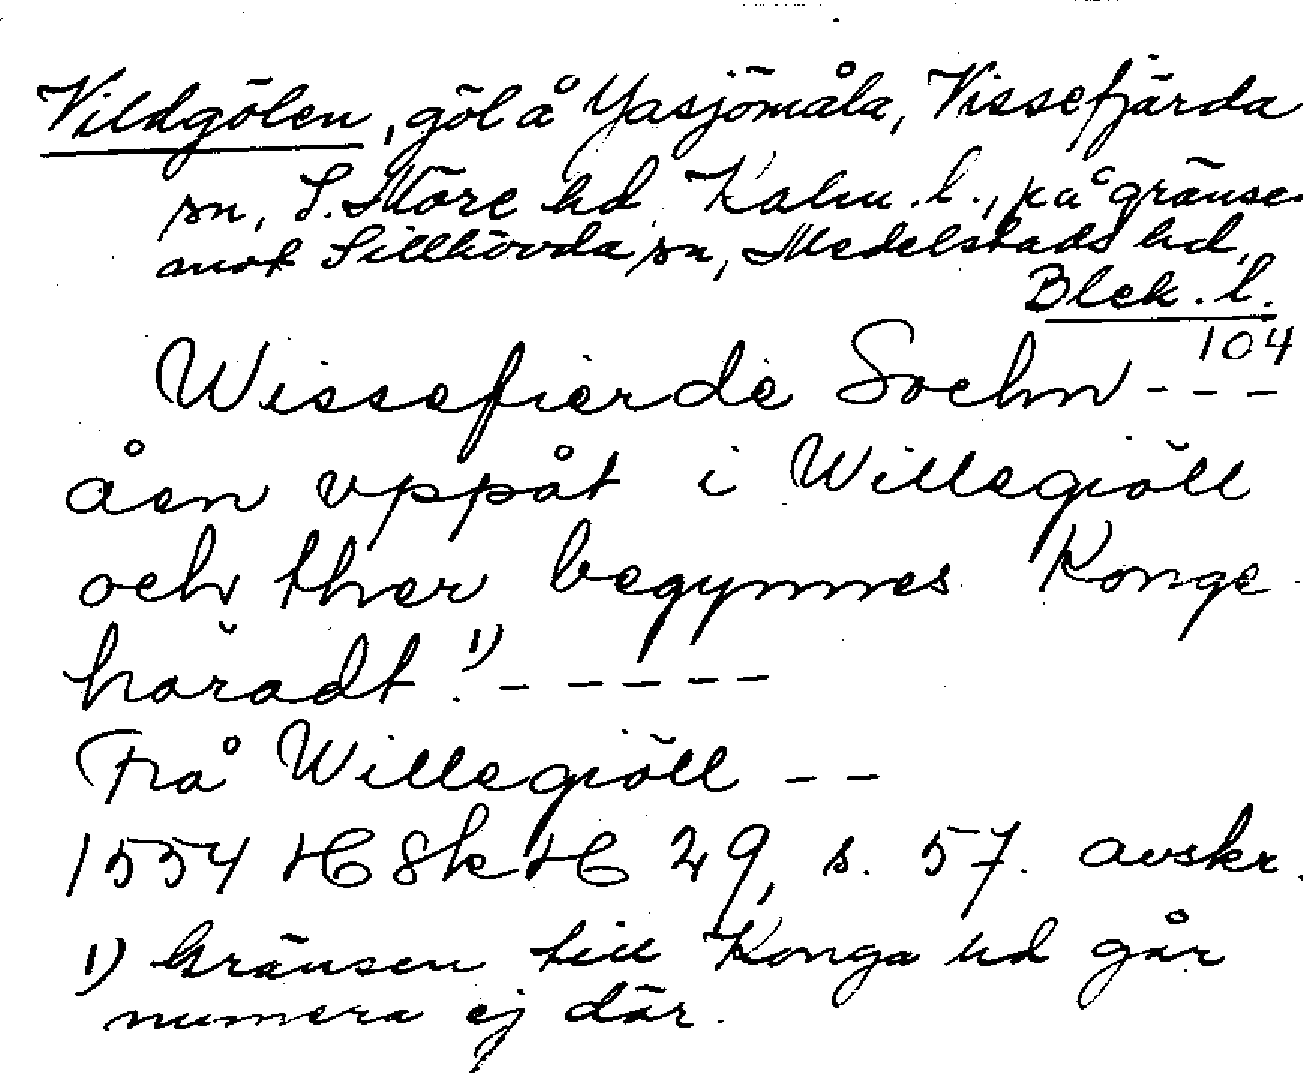 Vildgölen, göl å Yasjömåla, Vissefjärda
sn, S. Möre hd, Kalm. l., på gränsen
mot Sillhövda sn, Medelstads hd,
Blek. l.
104
Wissefierde Sochn - - -
åen vppåt i Willegiöll
och ther begynnes Konge
häradt.1) - - - - -
Frå Willegiöll - -
1554 HSkH 29, s. 57. avskr.
1) Gränsen till Konga hd går
numera ej där.